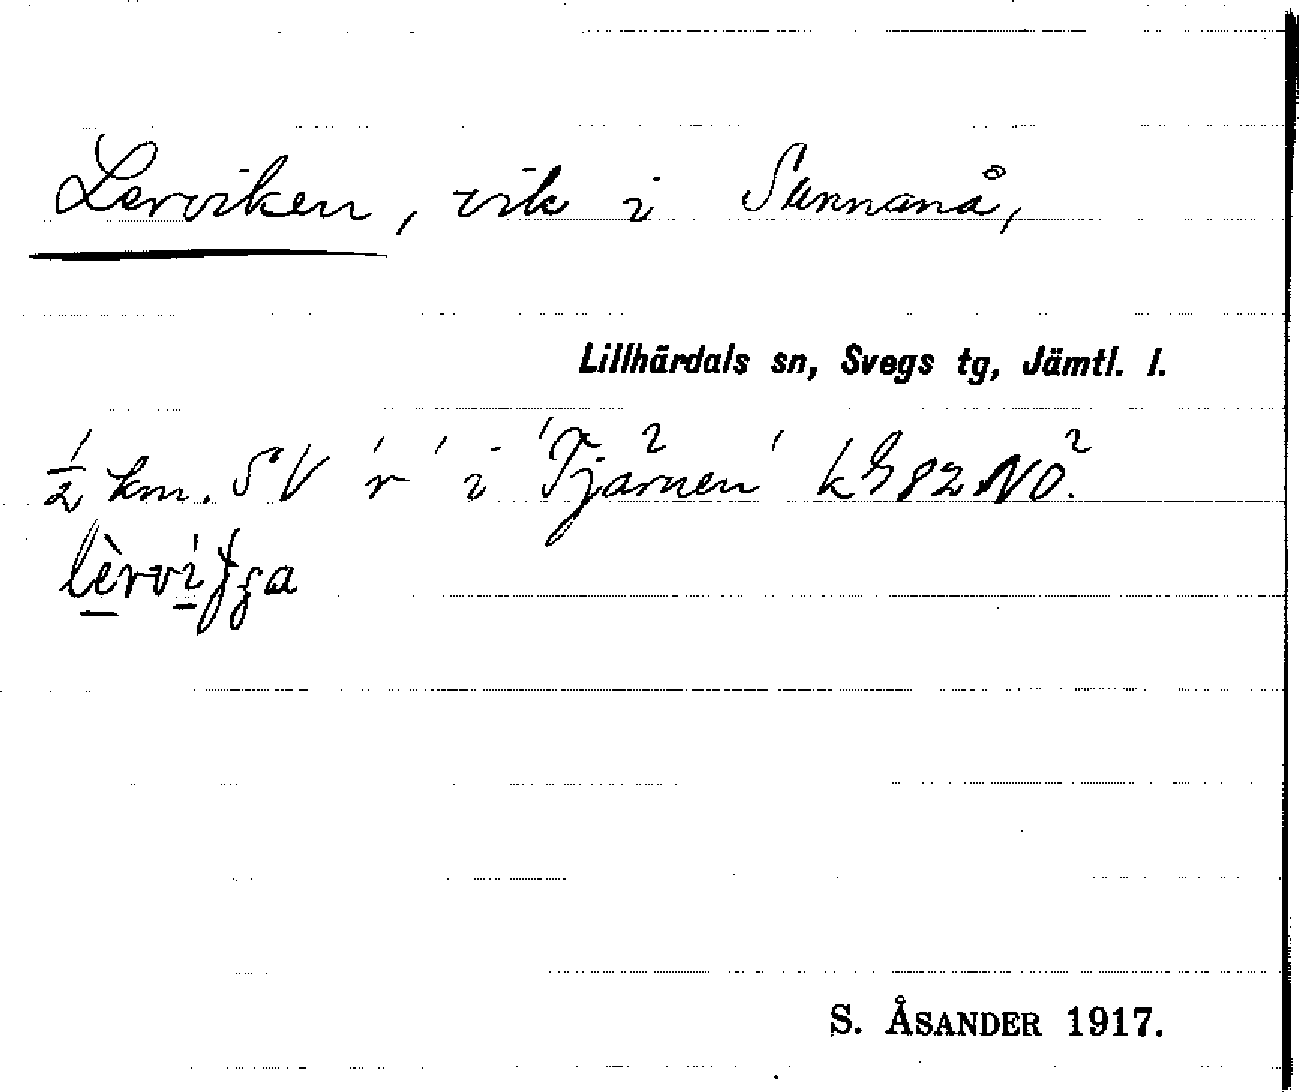 Lerviken, vik i Sunnanå,
Lillhärdals sn, Svegs tg, Jämtl. l.
½ km. SV 'r' i 'Tjärnen' kG 82 NO.
lèrvi̱ʃʃa
S. ÅSANDER 1917.